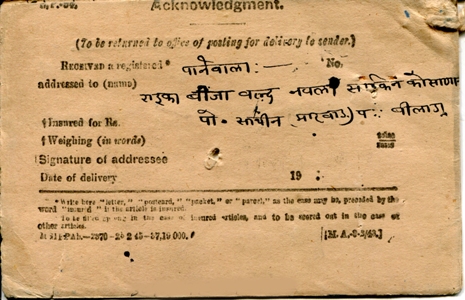 Acknowledgment.
(To be returned to office of posting for delivery to sender.)
RECEIVED a registered* पानेवाला:— No.
addressed to (name) राइका बीजा वल्द साकिन कोसाणा
†Insured for Rs. पो. (मारवाड़) प. बीलाड़ा
†Weighing (in words)
†Signature of addressee
Date of delivery 19
*Write here "letter," "postcard," "packet," or "parcel," as the case may be, preceded by the
word "insured" if the article is insured.
†To be filled up only in the case of insured articles, and to be scored out in the case of
other articles.
[M. A.